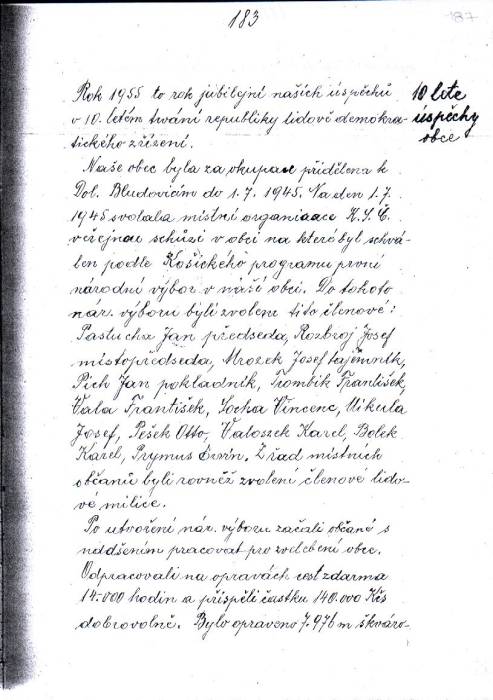 183
187
Rok 1955 to rok jubilejní našich úspěchů
v 10. letém trvání republiky lidově demokra-
tického zřízení.
10 leté
úspěchy
obce
Naše obec byla za okupace přidělena k
Dol. Bludovicím do 1.7. 1945. Na den 1.7.
1945 svolala místní organisace K.S.Č.
veřejnou schůzi v obci na které byl schvá-
len podle Košického programu první
národní výbor v naší obci. Do tohoto
nár. výboru byli zvoleni tito členové:
Pastucha Jan předseda, Rozbroj Josef
místopředseda, Mrozek Josef tajemník,
Pich Jan pokladník, Trombik František,
Vala František, Socha Vincenc, Nikerla
Josef, Pešek Otto, Valoszek Karel, Bolek
Karel, Prymus Ervín. Z řad místních
občanů byli rovněž zvoleni členové lido-
vé milice.
Po utvoření nár. výboru začali občané s
nadšením pracovat pro zvelebení obce.
Odpracovali na opravách cest zdarma
14.000 hodin a přispěli částkou 140.000 Kčs
dobrovolně. Bylo opraveno 7.976 m škváro-